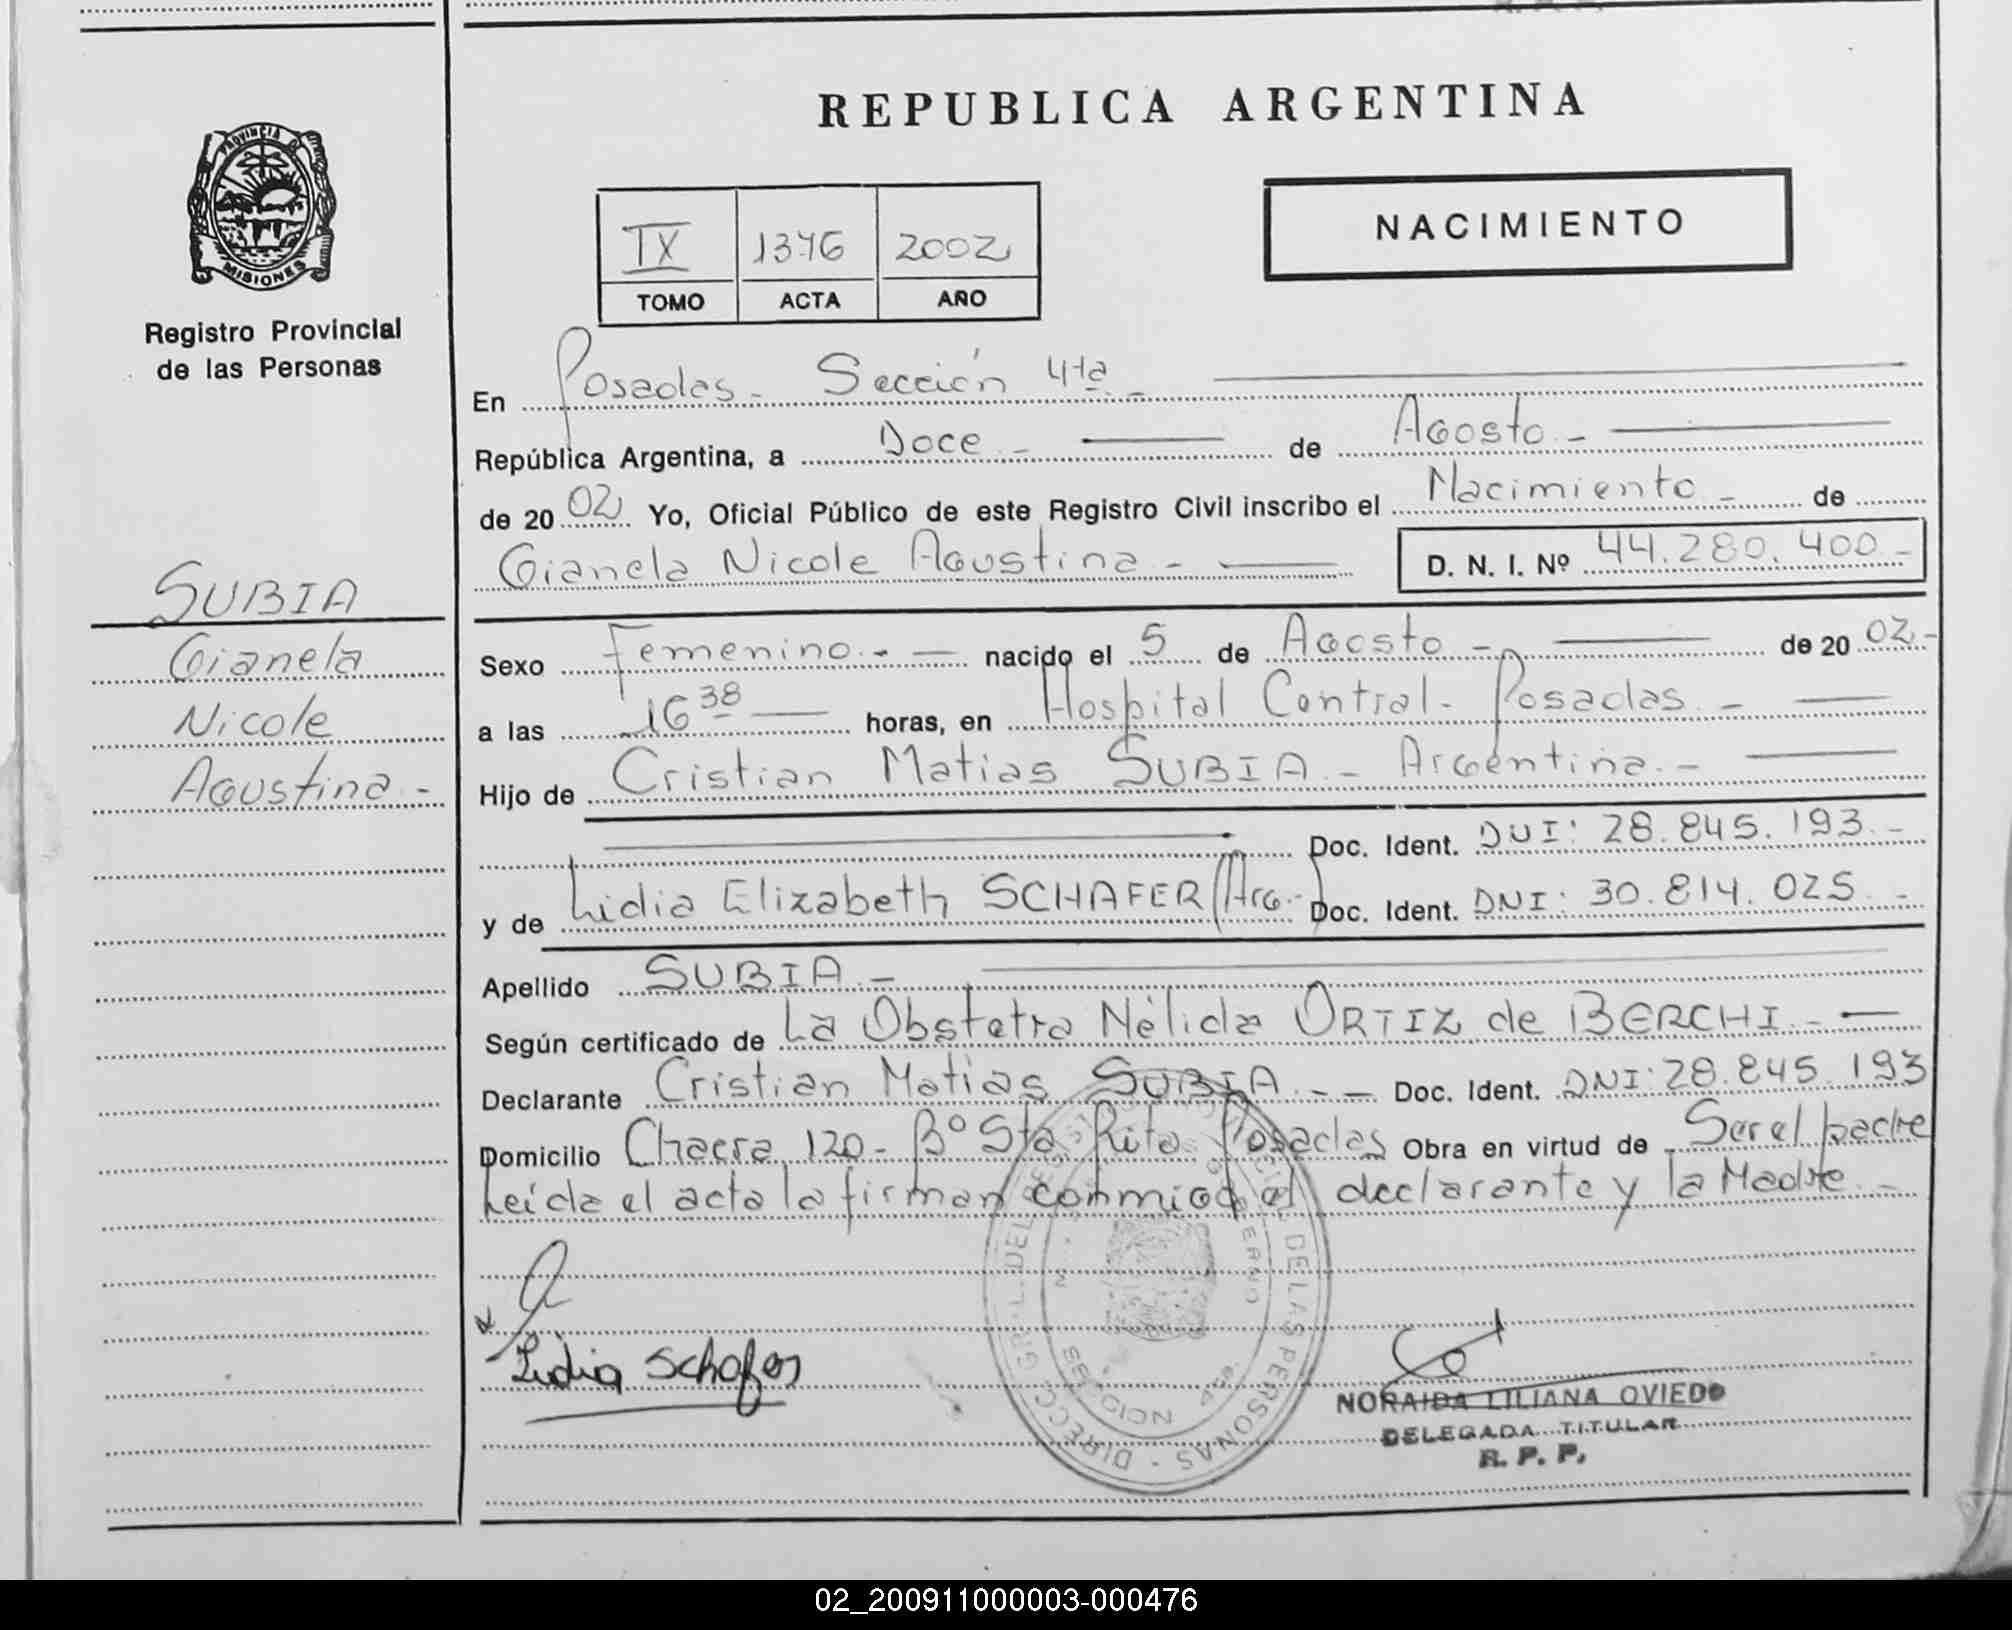 REPUBLICA ARGENTINA
PROVINCIA D
MISIONES
Registro Provincial
de las Personas
NACIMIENTO
IX 1376 2002
TOMO ACTA AÑO
En Posadas - Sección 4ta -
República Argentina, a Doce - de Agosto -
de 20 02 Yo, Oficial Público de este Registro Civil inscribo el Nacimiento - de
Gianela Nicole Agustina - D. N. I. Nº 44.280.400 -
SUBIA
Gianela
Nicole
Agustina -
Sexo Femenino - - nacido el 5 de Agosto - de 20 02 -
a las 16 38 horas, en Hospital Central - Posadas -
Hijo de Cristian Matias SUBIA - Argentina. -
Doc. Ident. DUI: 28.845.193 -
y de Lidia Elizabeth SCHAFER / Arg. - Doc. Ident. DNI: 30.814.025 -
Apellido SUBIA -
Según certificado de La Obstetra Nélida ORTIZ de BERCHI - -
Declarante Cristian Matias SUBIA - - Doc. Ident. DNI: 28.845.193
Domicilio Chacra 120 - Bº Sta Rita Posadas Obra en virtud de Ser el padre
Leída el acta la firman conmigo el declarante y la Madre -
Lidia Schafer
DIRECC. GRAL. DEL REGISTRO PROVINCIAL DE LAS PERSONAS
NORAIDA LILIANA OVIEDO
DELEGADA TITULAR
R. P. P.
02_200911000003-000476